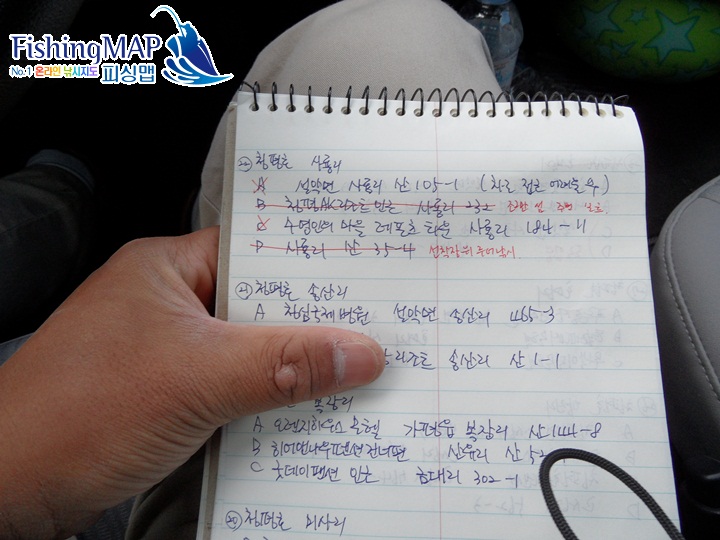 FishingMAP
No.1 온라인 낚시지도 피싱맵
청평호 사룡리
A 설악면 사룡리 산 105-1 (차로 접근 어려울 수)
B 청평AK리조트 인근 사룡리 232
C 수영인의 마을 레포츠 타운 사룡리 184-11
D 사룡리 산 35-4 선착장위주어낚시
청평호 송산리
A 청심국제병원 설악면 송산리 465-3
리조트 송산리 산 1-1
복장리
A 오렌지하우스모텔 가평읍 복장리 산144-8
B 히어앤나우펜션건너편 산유리 산 52
C 굿데이펜션 인근 호대리 302-1
청평호 미사리